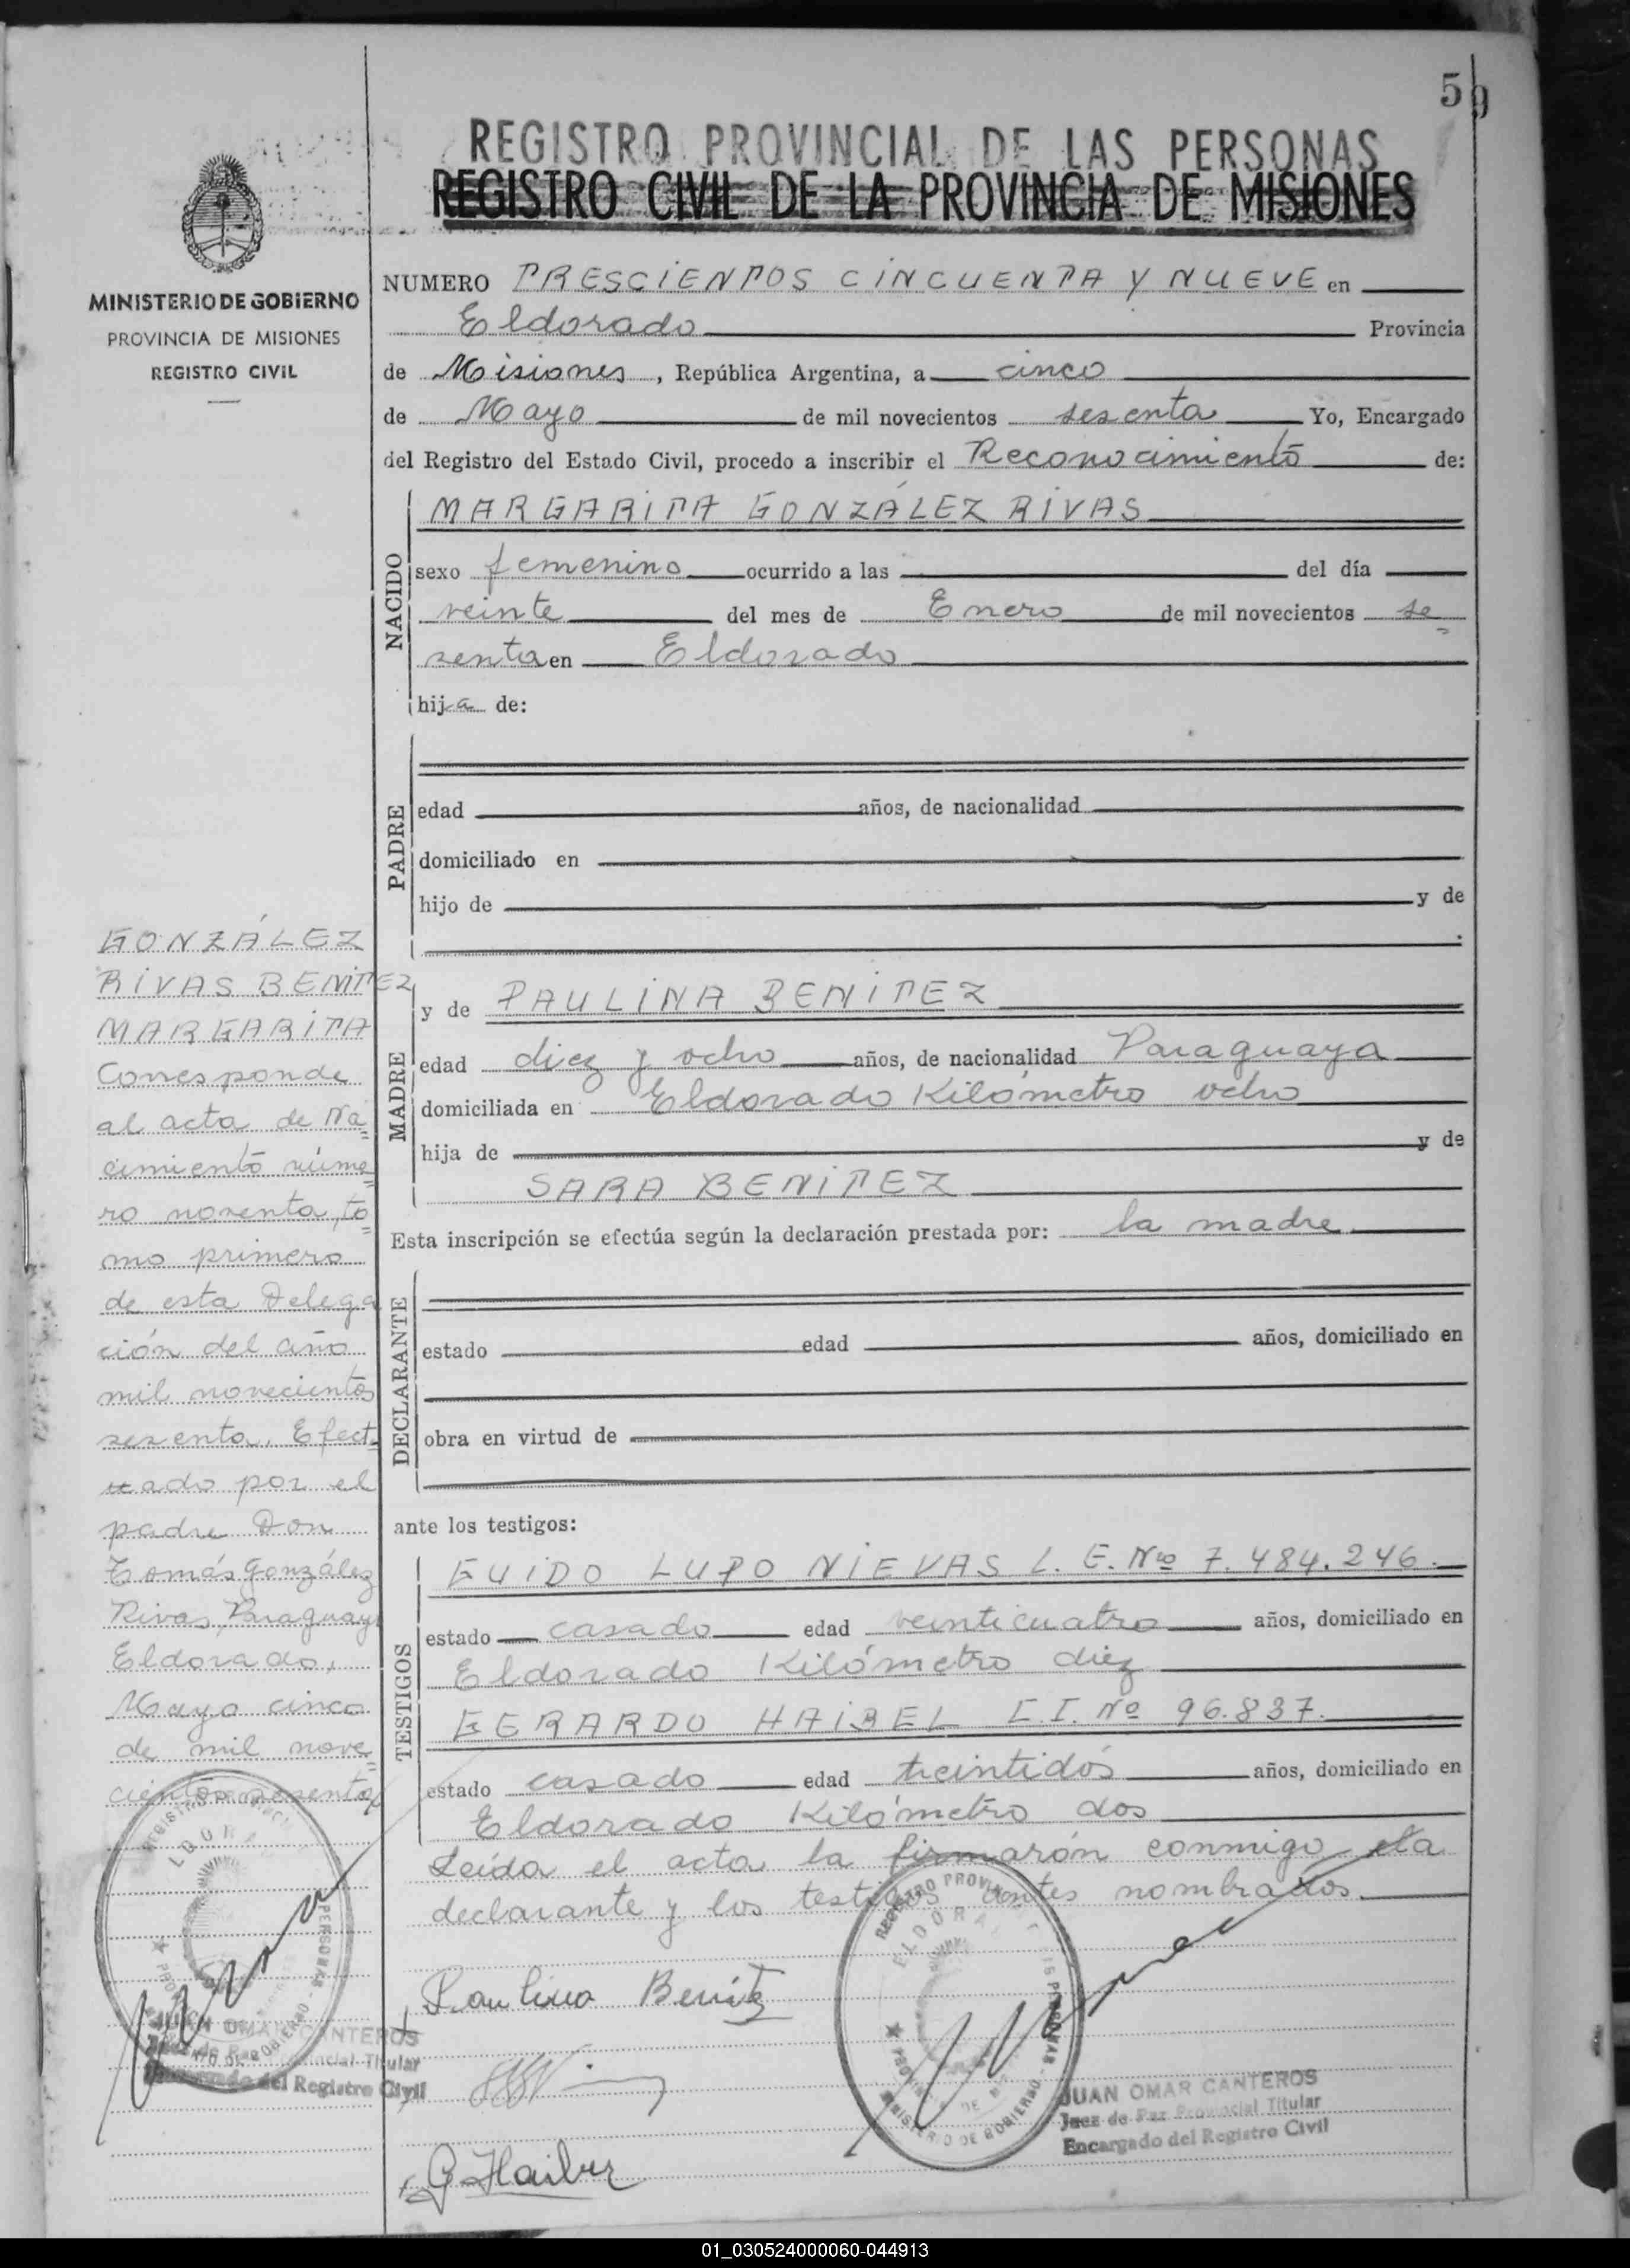 59
REGISTRO PROVINCIAL DE LAS PERSONAS
REGISTRO CIVIL DE LA PROVINCIA DE MISIONES
MINISTERIO DE GOBIERNO
PROVINCIA DE MISIONES
REGISTRO CIVIL
NUMERO TRESCIENTOS CINCUENTA Y NUEVE en
Eldorado Provincia
de Misiones, República Argentina, a cinco
de Mayo de mil novecientos sesenta Yo, Encargado
del Registro del Estado Civil, procedo a inscribir el Reconocimiento de:
NACIDO
MARGARITA GONZÁLEZ RIVAS
sexo femenino ocurrido a las del día
veinte del mes de Enero de mil novecientos se=
senta en Eldorado
hija de:
PADRE
edad años, de nacionalidad
domiciliado en
hijo de y de
MADRE
y de PAULINA BENITEZ
edad diez y ocho años, de nacionalidad Paraguaya
domiciliada en Eldorado Kilómetro ocho
hija de y de
SARA BENITEZ
Esta inscripción se efectúa según la declaración prestada por: la madre
DECLARANTE
estado edad años, domiciliado en
obra en virtud de
ante los testigos:
TESTIGOS
GUIDO LUPO NIEVAS L. E. Nro 7.484.246.
estado casado edad veinticuatro años, domiciliado en
Eldorado Kilómetro diez
GERARDO HAIBEL C.I. Nº 96.837.
estado casado edad treintidós años, domiciliado en
Eldorado Kilómetro dos
Leída el acta la firmarón conmigo, la
declarante y los testigos antes nombrados.
Paulina Benitz
G Haibel
JUAN OMAR CANTEROS
Juez de Paz Provincial Titular
Encargado del Registro Civil
GONZÁLEZ
RIVAS BENITEZ
MARGARITA
Corresponde
al acta de Na=
cimiento núme=
ro noventa, to=
mo primero
de esta Delega
ción del año
mil novecientos
sesenta. Efect=
uado por el
padre Don
Tomás González
Rivas, Paraguayo
Eldorado,
Mayo cinco
de mil nove=
cientos sesenta
JUAN OMAR CANTEROS
Juez de Paz Provincial Titular
Encargado del Registro Civil
01_030524000060-044913